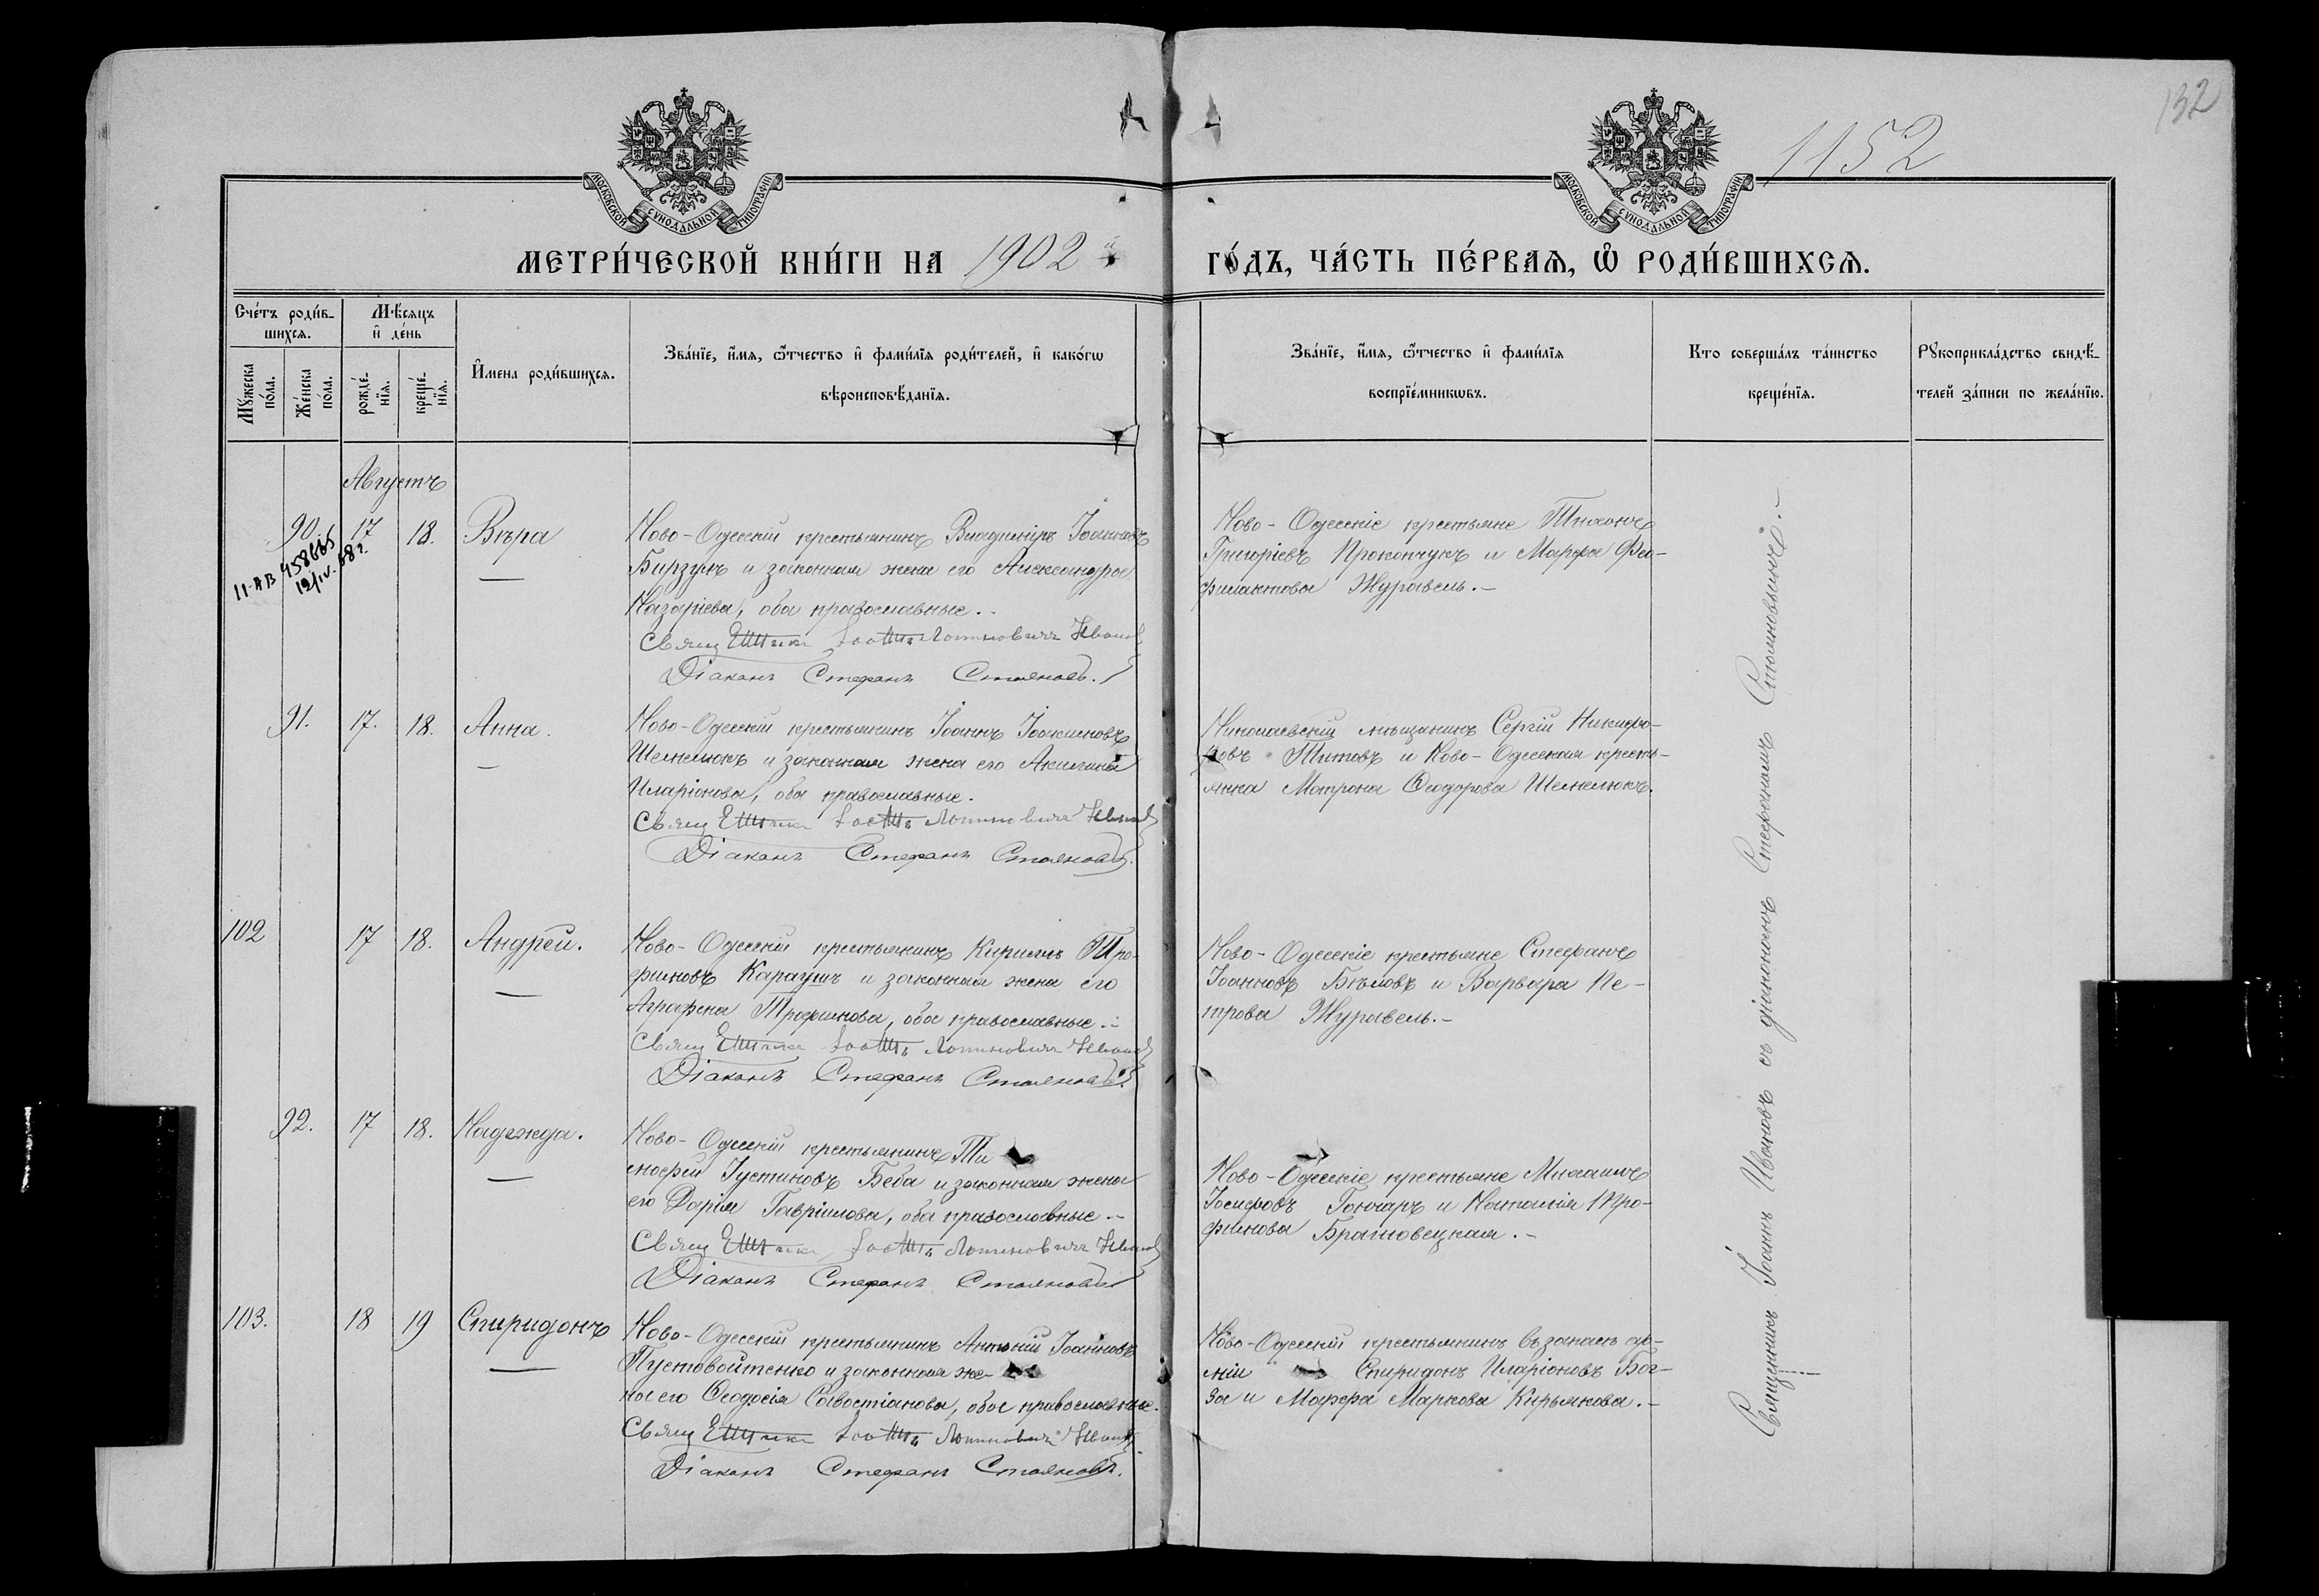 132
1152
МОСКОВСКОЙ СУНОДАЛЬНОЙ ТИПОГРАФІИ
МОСКОВСКОЙ СУНОДАЛЬНОЙ ТИПОГРАФІИ
МЕТРИ́ЧЕСКОЙ КНИ́ГИ НА 1902 й
ГО́ДЪ, ЧА́СТЬ ПЕ́РВАѦ, Ѽ РОДИ́ВШИХСѦ.
Сче́тъ роди́в-
шихсѧ.
Мꙋ́жеска по́ла.
Же́нска по́ла.
Мѣ́сѧцъ
и҆ де́нь
рожде́-
нїѧ.
креще́-
нїѧ.
И҆́мена роди́вшихсѧ.
Зва́нїе, и҆́мѧ, ѻ҆́тчество и҆ фами́лїѧ роди́телей, и҆ како́гѡ
вѣроисповѣ́данїѧ.
Зва́нїе, и҆́мѧ, ѻ҆́тчество и҆ фами́лїѧ
воспрїе́мникѡвъ.
Кто соверша́лъ та́инство
креще́нїѧ.
Рꙋкоприкла́дство свидѣ́-
телей за́писи по жела́нїю.
Августъ
90. 17 18. Вѣра
II-АВ 458665
12/IV-68 г.
Ново-Одесскій крестьянинъ Владиміръ Іоанновъ
Бирзулъ и законная жена его Александра
Назаріева, оба православные.
Свящ Іоаннъ Ивановъ
Діаконъ Стефанъ Стояновъ.
Ново-Одесскіе крестьяне Тихонъ
Григоріевъ Прокопчукъ и Марфа Фео-
филактова Журавель.
91. 17. 18. Анна.
Ново-Одесскій крестьянинъ Іоаннъ Іоакимовъ
Шемелюкъ и законная жена его Акилина
Иларіонова, оба православные.
Свящ
Діаконъ Стефанъ Стояновъ.
Николаевскій мѣщанинъ Сергій Никифо-
ровъ Титовъ и Ново-Одесская кресть-
янка Матрона Ѳеодорова Шемелюкъ.
102 17 18. Андрей.
Ново-Одесскій крестьянинъ Кириллъ Тро-
фимовъ Карауш и законная жена его
Аграфена Трофимова, оба православные.
Свящ
Діаконъ Стефанъ Стояновъ.
Ново-Одесскіе крестьяне Стефанъ
Іоанновъ Бѣловъ и Варвара Пе-
трова Журавель.
92. 17 18. Надежда.
Ново-Одесскій крестьянинъ Ти
мофей Іустиновъ Беба и законная жена
его Дарія Гавріилова, оба православные.
Свящ
Діаконъ Стефанъ Стояновъ
Ново-Одесскіе крестьяне Михаилъ
Іосифовъ Гончаръ и Наталія Тро-
фимова Братовецкая.
103. 18 19 Спиридонъ
Ново-Одесскій крестьянинъ Антоній Іоанновъ
Пустовойтенко и законная же-
на его Ѳеодосія Савостіанова, оба православные.
Свящ
Діаконъ Стефанъ Стояновъ.
Ново-Одесскій крестьянинъ въ запасѣ ар-
міи Спиридонъ Иларіоновъ Бог-
за и Марфа Маркова Кирьякова.
Священникъ Іоаннъ Ивановъ съ діакономъ Стефаномъ Стояновымъ.